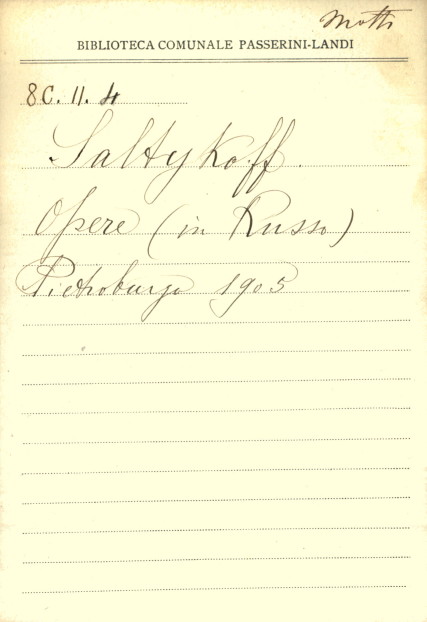 Motti
BIBLIOTECA COMUNALE PASSERINI-LANDI
8C. II. 4
Saltykoff.
Opere (in Russo)
Pietroburgo 1905